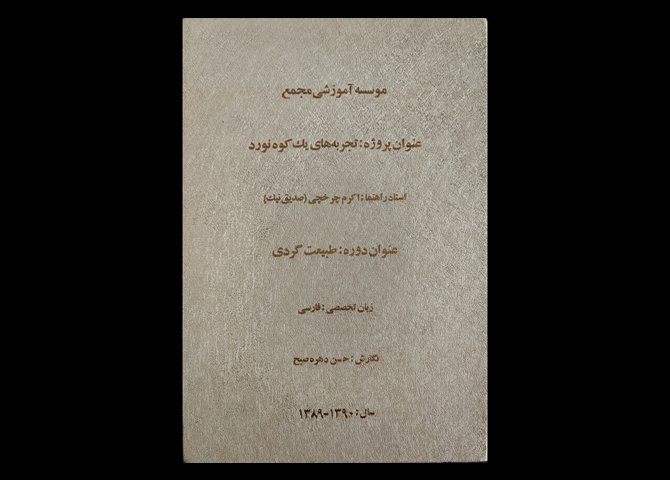 موسسه آموزشی مجمع
عنوان پروژه: تجربه‌های یک کوه نورد
استاد راهنما: اکرم چرخچی (صدیق نیک)
عنوان دوره: طبیعت گردی
زبان تخصصی: فارسی
نگارش: حسن دهره صبح
سال: ۱۳۹۰-۱۳۸۹